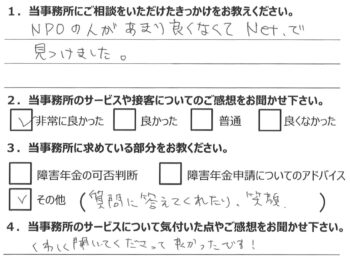 1．当事務所にご相談をいただけたきっかけをお教えください。
NPOの人があまり良くなくてNet.で
見つけました。
2．当事務所のサービスや接客についてのご感想をお聞かせ下さい。
✓非常に良かった □良かった □普通 □良くなかった
3．当事務所に求めている部分をお教えください。
□障害年金の可否判断 □障害年金申請についてのアドバイス
✓その他（質問に答えてくれたり、笑顔）
4．当事務所のサービスについて気付いた点やご感想をお聞かせ下さい。
くわしく聞いてくださって良かったです！